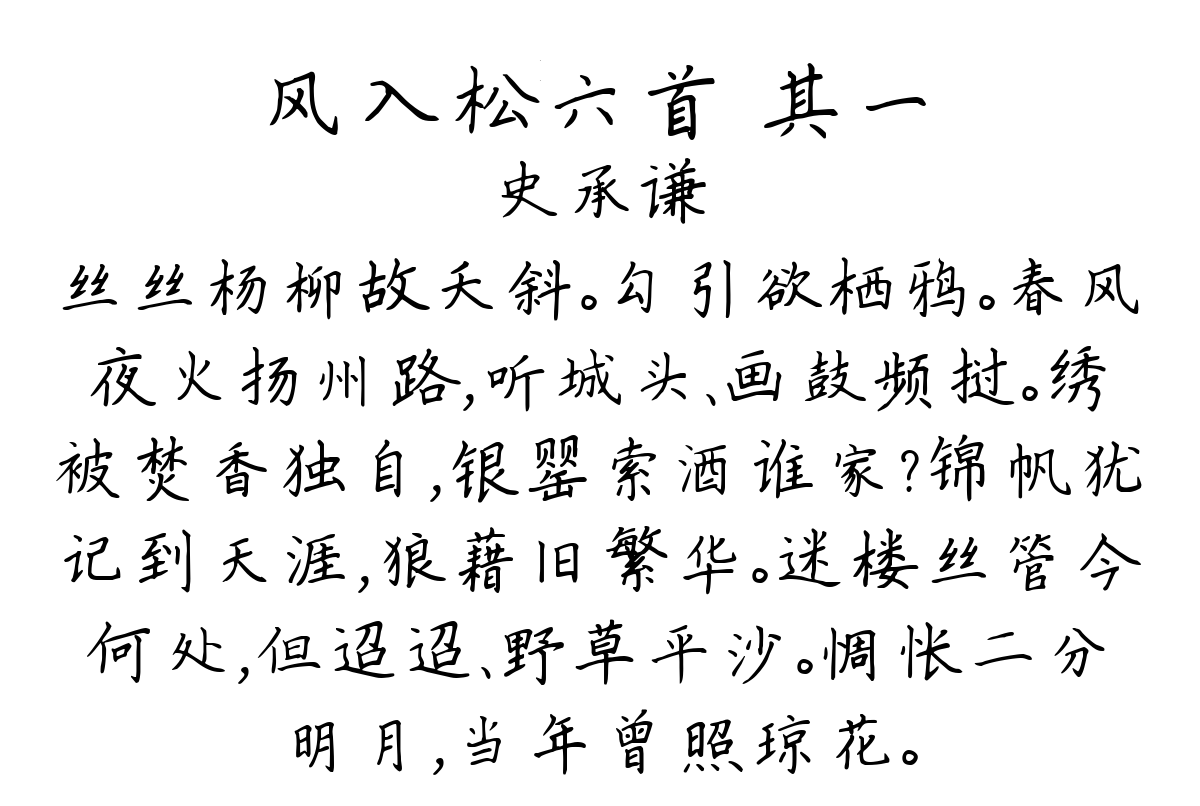 风入松六首 其一
史承谦
丝丝杨柳故夭斜。勾引欲栖鸦。春风
夜火扬州路,听城头、画鼓频挝。绣
被焚香独自,银罂索酒谁家?锦帆犹
记到天涯,狼藉旧繁华。迷楼丝管今
何处,但迢迢、野草平沙。惆怅二分
明月,当年曾照琼花。